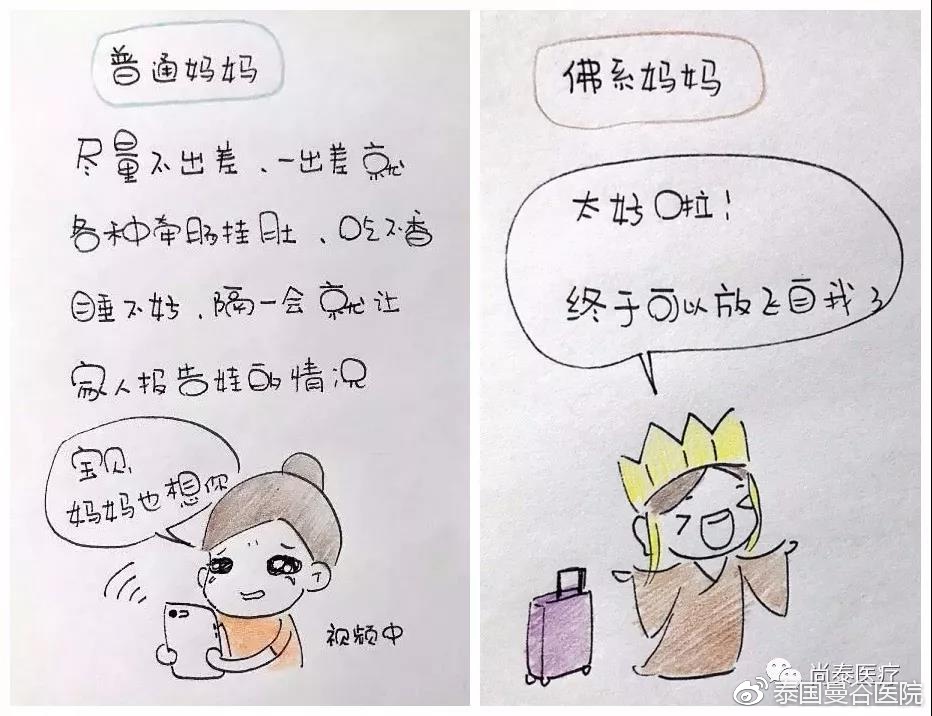 普通妈妈
尽量不出差、一出差就
各种牵肠挂肚、吃不香
睡不好、隔一会就让
家人报告娃的情况
宝贝,
妈妈也想你
视频中
佛系妈妈
太好啦!
终于可以放飞自我了
尚泰医疗
泰国曼谷医院